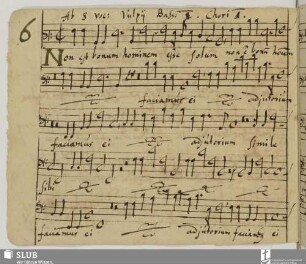 6
Ab 8 voc: Vulpij Bass: Chori 1.
Non est bonum hominem esse solum non e bonu hominem
faciamus ei adjutorium
faciamus ei adjutorium simile
sibi
faciamus ei adjutorium faciamus ei
SLUB
Wir führen Wissen.